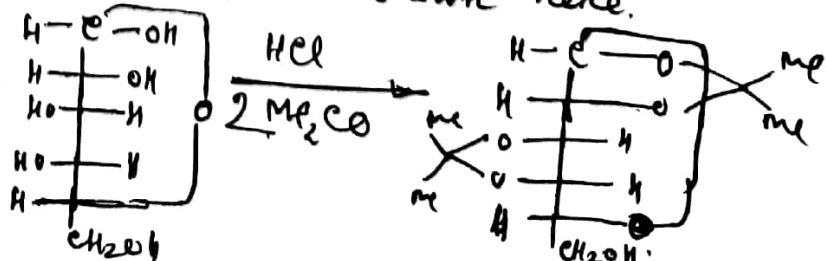 here.
H-C-OH
H OH
HO H
HO H
H
CH2OH
O
HCl
2 Me2CO
H-C-O
H O
O H
O H
H O
CH2OH.
Me
Me
Me
Me